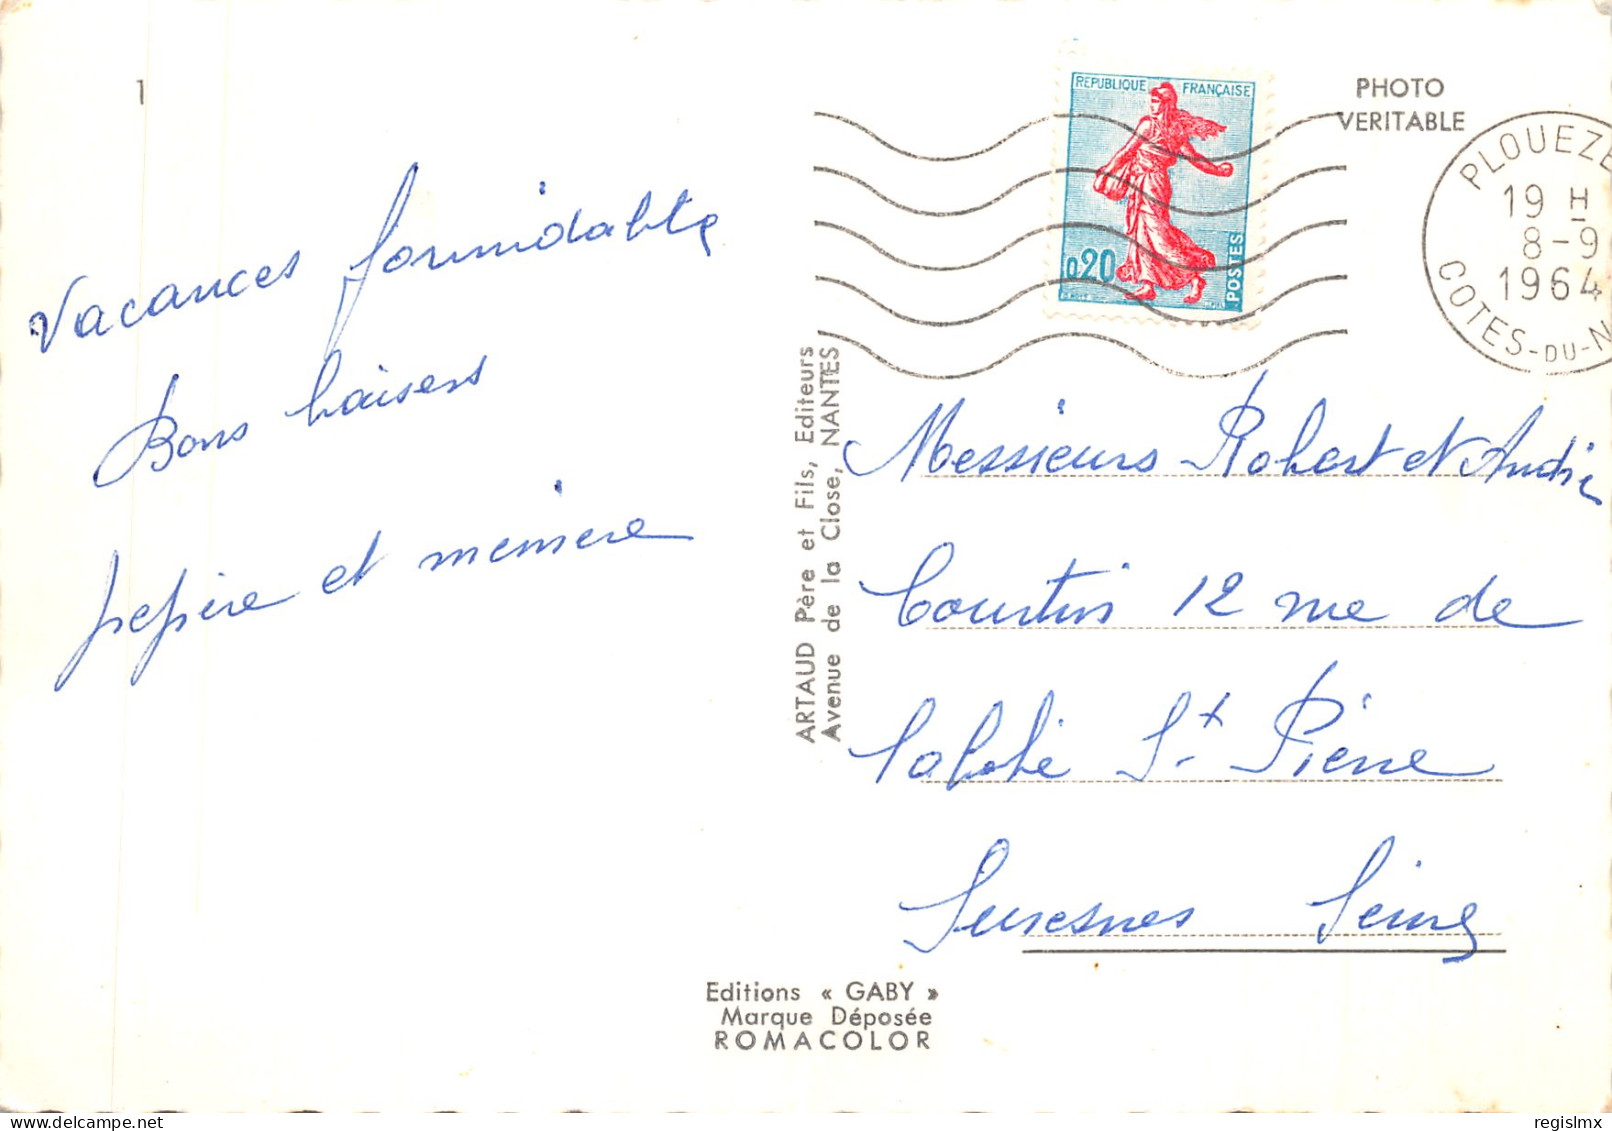 1
Vacances formidable
Bons baisers
pepère et mémère
REPUBLIQUE FRANÇAISE
0,20
POSTES
PHOTO
VERITABLE
PLOUEZE
19 H
8-9
1964
COTES-DU-N
ARTAUD Père et Fils, Editeurs
Avenue de la Close, NANTES
Messieurs Robert et André
Courtin 12 rue de
l'abbé St Pierre
Suresnes Seine
Editions « GABY »
Marque Déposée
ROMACOLOR
regislmx